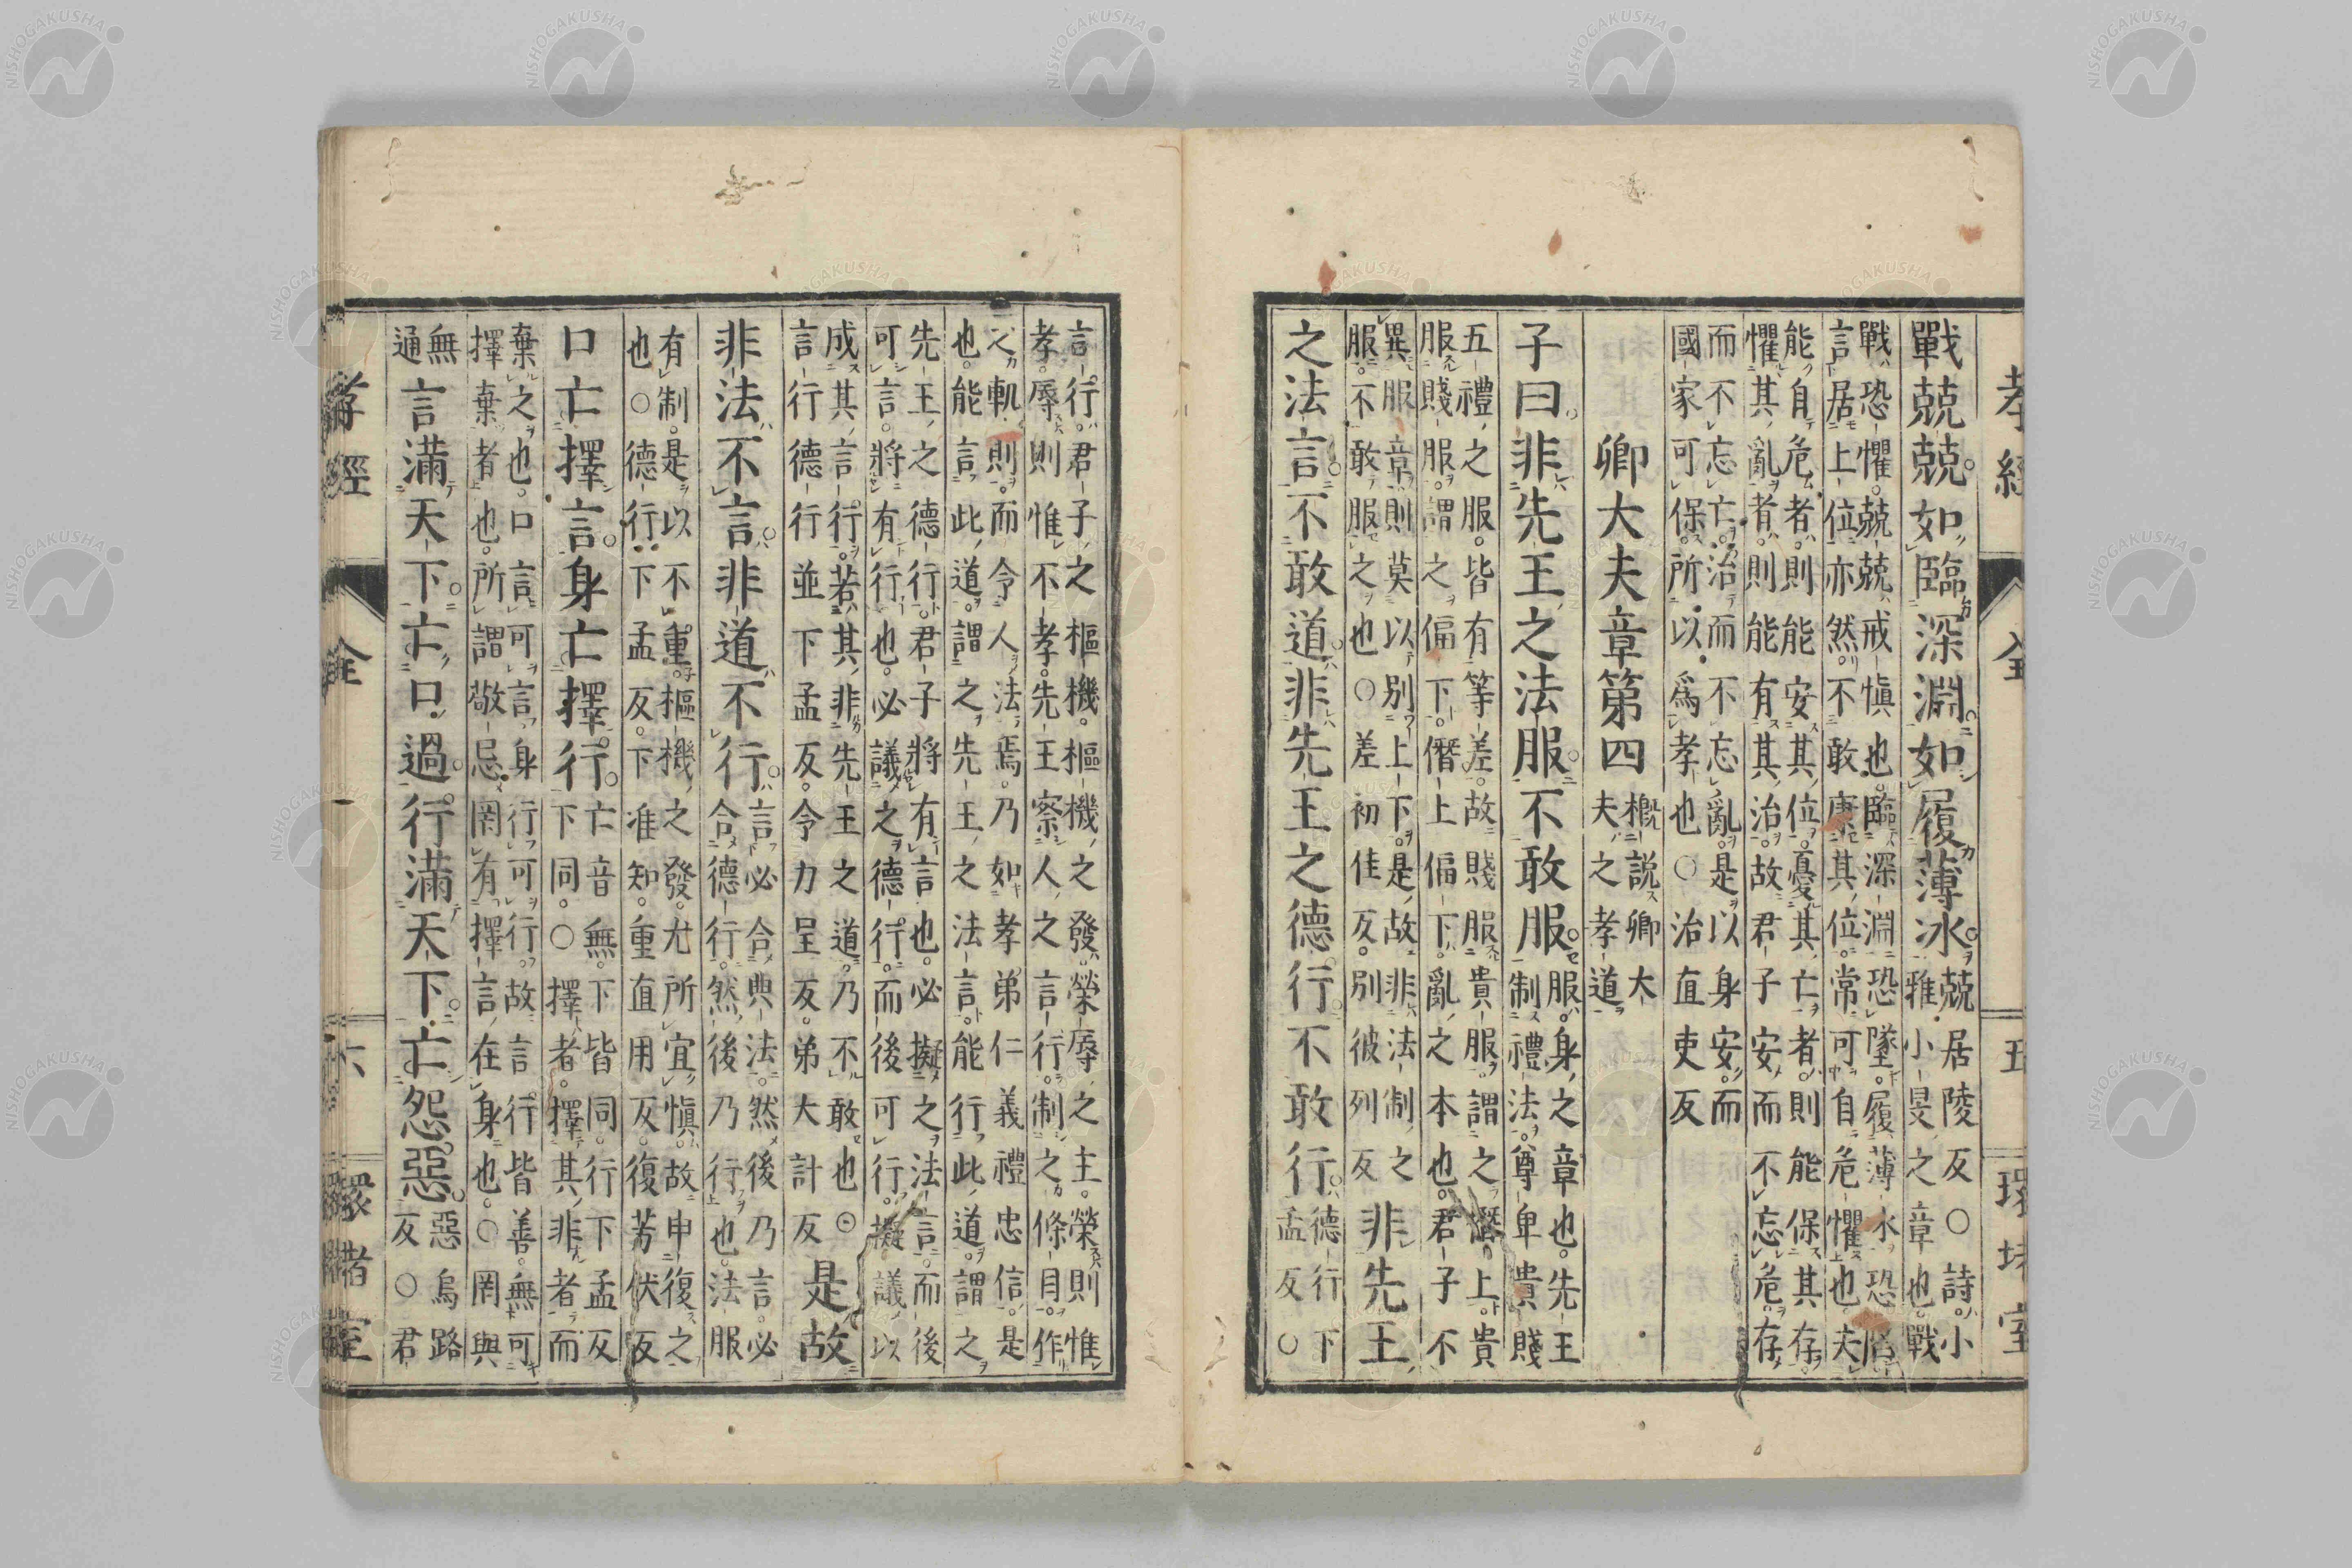 孝經　全　五　環堵室
戰兢兢如臨深淵如履薄冰
兢居陵反○詩小
雅小旻之章也戰
戰恐懼兢兢戒愼也臨深淵恐墜履薄冰恐陷
言居上位亦然不敢康其位常可自危懼也夫
能自危者則能安其位憂其亡者則能保其存
懼其亂者則能有其治故君子安而不忘危存
而不忘亡治而不忘亂是以身安而
國家可保所以爲孝也○治直吏反
卿大夫章第四
概説卿大
夫之孝道
子曰非先王之法服不敢服
服身之章也先王
制禮法尊卑貴賤
五禮之服皆有等差故賤服貴服謂之僭上貴
服賤服謂之偪下僭上偪下亂之本也君子不
異服章則莫以別上下是故非法制之
服不敢服之也○差初佳反別彼列反
非先王
之法言不敢道非先王之德行不敢行
德行下
孟反○
言行君子之樞機樞機之發榮辱之主榮則惟
孝辱則惟不孝先王察人之言行制之條目作
之軌則而令人法焉乃如孝弟仁義禮忠信是
也能言此道謂之先王之法言能行此道謂之
先王之德行君子將有言也必擬之法言而後
可言將有行也必議之德行而後可行擬議以
成其言行若其非先王之道乃不敢也⊙
言行德行並下孟反令力呈反弟大計反
是故
非法不言非道不行
言必合與法然後乃言必
合德行然後乃行也法服
有制是以不重樞機之發尤所宜愼故申復之
也○德行下孟反下准知重直用反復芳伏反
口亡擇言身亡擇行
亡音無下皆同行下孟反
下同○擇者擇其非者而
棄之也口言可言身行可行故言行皆善無可
擇棄者也所謂敬忌罔有擇言在身也○罔與
無
通
言滿天下亡口過行滿天下亡怨惡
惡烏路
反○君
孝經　全　六　環堵室
NISHOGAKUSHA